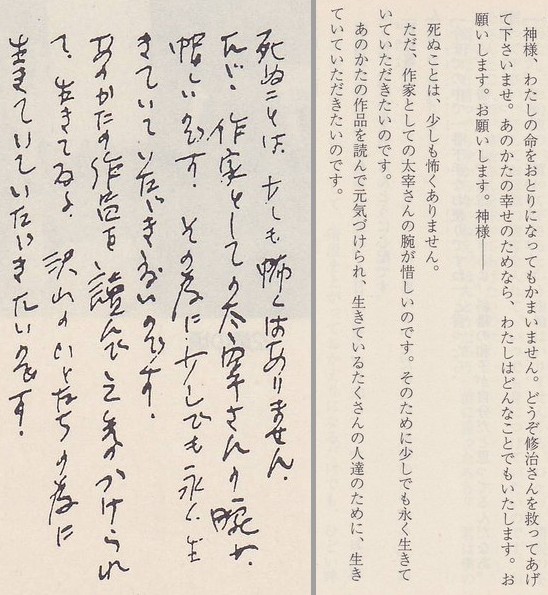 神様、わたしの命をおとりになってもかまいません。どうぞ修治さんを救ってあげ
て下さいませ。あのかたの幸せのためなら、わたしはどんなことでもいたします。お
願いします。お願いします。神様――
死ぬことは、少しも怖くありません。
ただ、作家としての太宰さんの腕が惜しいのです。そのために少しでも永く生きて
いていただきたいのです。
あのかたの作品を読んで元気づけられ、生きているたくさんの人達のために、生き
ていていただきたいのです。
死ぬことは、少しも怖くはありません。
たゞ、作家としての太宰さんの腕が、
惜しいのです。その為に少しでも永く生
きていていたゞきたいのです。
あのかたの作品を讀んで元気づけられ
て、生きてゐる、沢山のひとたちの為に
生きていていたゞきたいのです。